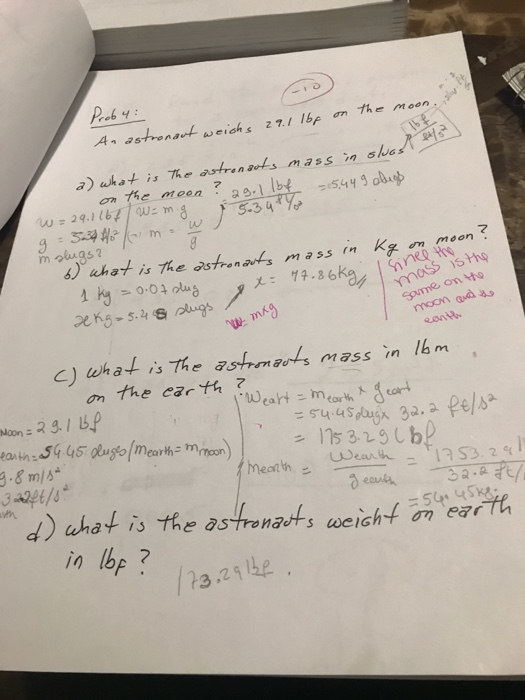 -10
Prob 4:
An astronaut weighs 29.1 lbf on the moon.
lbf
ft/s²
a) what is the astronauts mass in slugs
on the moon?
w = 29.1 lbf / w = m·g
= 29.1 lbf
5.34 ft/s²
= 5.449 slugs
g = 5.34 ft/s²
m = w
g
m slugs?
b) what is the astronauts mass in Kg on moon?
1 kg = 0.07 slug
x kg = 5.45 slugs
x = 77.86 kg
w = mxg
Since the
mass is the
same on the
moon and the
earth
c) what is the astronauts mass in lbm
on the earth?
Moon = 29.1 lbf
earth = 54.45 slugs (mearth = mmoon)
9.8 m/s²
Weart = mearth x geart
= 54.45 slug x 32.2 ft/s²
= 1753.29 lbf
mearth = Wearth
gearth
= 1753.29
32.2 ft/
= 54.45 kg.
d) what is the astronauts weight on earth
in lbf?
173.29 lbf.